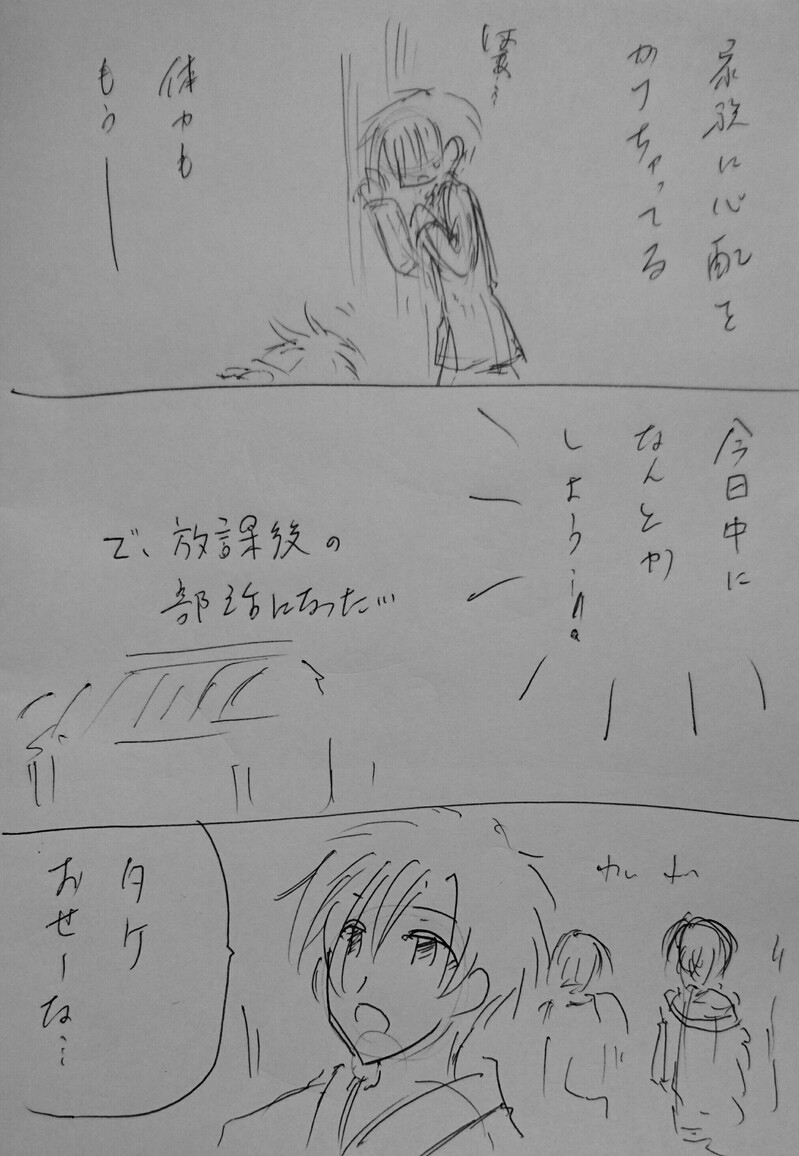 家族に心配を
かけちゃってる
体力も
もうー
今日中に
なんとか
しよう…!!。
で、放課後の
部活になった…
わい わい
タケ
おせーな…